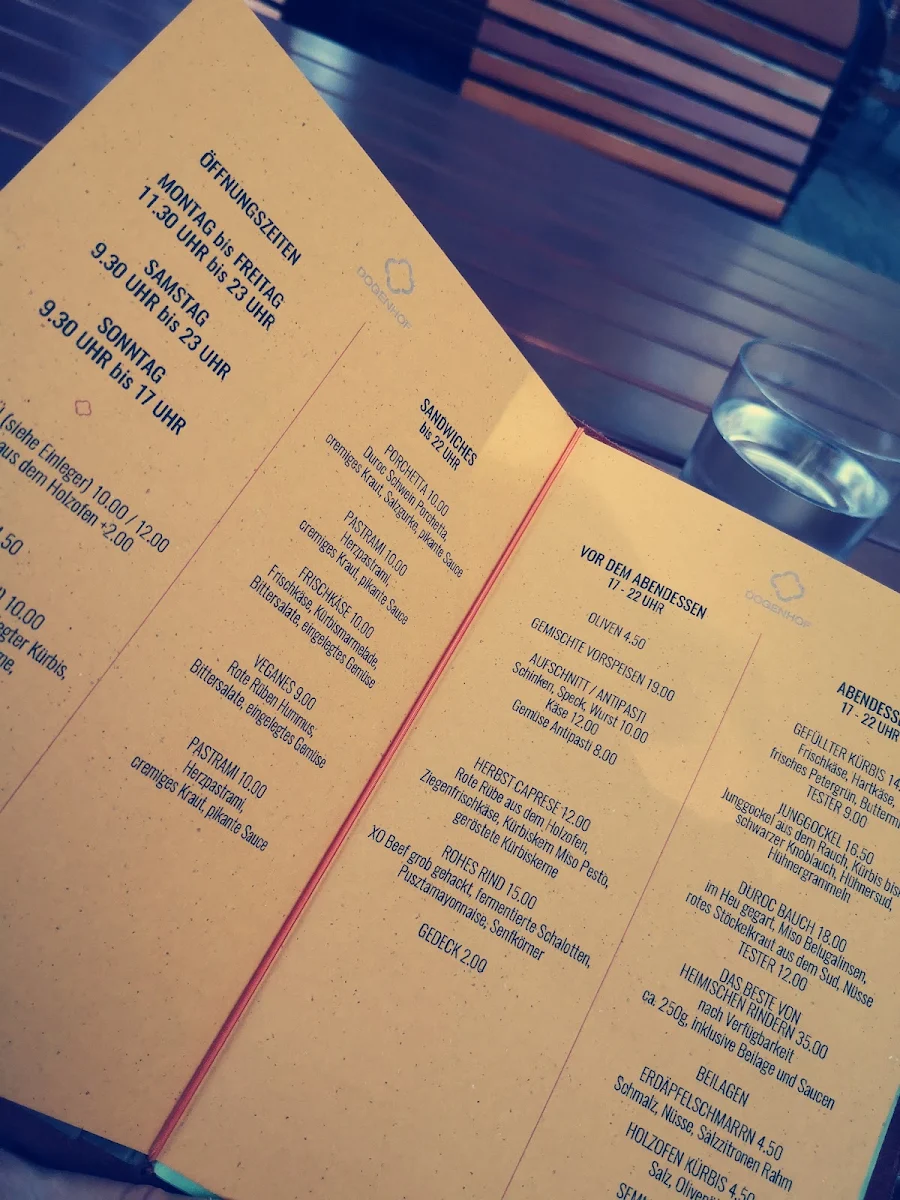 ÖFFNUNGSZEITEN
MONTAG bis FREITAG
11.30 UHR bis 23 UHR
SAMSTAG
9.30 UHR bis 23 UHR
SONNTAG
9.30 UHR bis 17 UHR
(siehe Einleger) 10.00 / 12.00
aus dem Holzofen +2.00
.50
10.00
Kürbis,
DOGENHOF
SANDWICHES
bis 22 UHR
PORCHETTA 10.00
Duroc Schwein Porchetta,
cremiges Kraut, Salzgurke, pikante Sauce
PASTRAMI 10.00
Herzpastrami,
cremiges Kraut, pikante Sauce
FRISCHKÄSE 10.00
Frischkäse, Kürbismarmelade,
Bittersalate, eingelegtes Gemüse
VEGANES 9.00
Rote Rüben Hummus,
Bittersalate, eingelegtes Gemüse
PASTRAMI 10.00
Herzpastrami,
cremiges Kraut, pikante Sauce
VOR DEM ABENDESSEN
17 - 22 UHR
OLIVEN 4.50
GEMISCHTE VORSPEISEN 19.00
AUFSCHNITT / ANTIPASTI
Schinken, Speck, Wurst 10.00
Käse 12.00
Gemüse Antipasti 8.00
HERBST CAPRESE 12.00
Rote Rübe aus dem Holzofen,
Ziegenfrischkäse, Kürbiskern Miso Pesto,
geröstete Kürbiskerne
ROHES RIND 15.00
XO Beef grob gehackt, fermentierte Schalotten,
Pusztamayonnaise, Senfkörner
GEDECK 2.00
DOGENHOF
ABENDESS
17 - 22 UHR
GEFÜLLTER KÜRBIS 14.
Frischkäse, Hartkäse,
frisches Petergrün, Butterm
TESTER 9.00
JUNGGOCKEL 16.50
Junggockel aus dem Rauch, Kürbis bis
schwarzer Knoblauch, Hühnersud,
Hühnergrammeln
DUROC BAUCH 18.00
im Heu gegart, Miso Belugalinsen,
rotes Stöckelkraut aus dem Sud, Nüsse
TESTER 12.00
DAS BESTE VON
HEIMISCHEN RINDERN 35.00
nach Verfügbarkeit
ca. 250g, inklusive Beilage und Saucen
BEILAGEN
ERDÄPFELSCHMARRN 4.50
Schmalz, Nüsse, Salzzitronen Rahm
HOLZOFEN KÜRBIS 4.50
Salz, Olivenöl
SEM